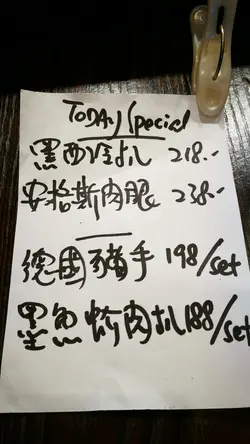 TODAY Special
黑西冷扒 218.-
安格斯肉眼 238.-
德國豬手 198/set
墨魚蚧肉扒188/set